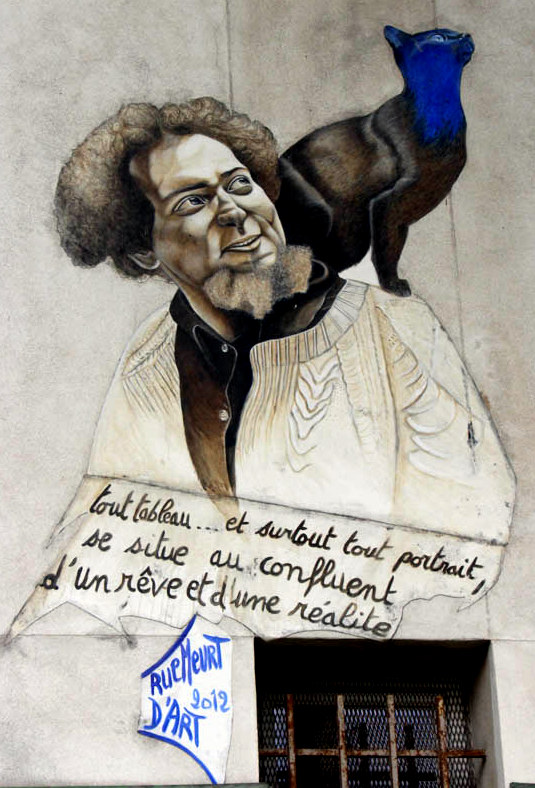 tout tableau... et surtout tout portrait,
se situe au confluent
d'un rêve et d'une réalite
RUE MEURT
D'ART
2012